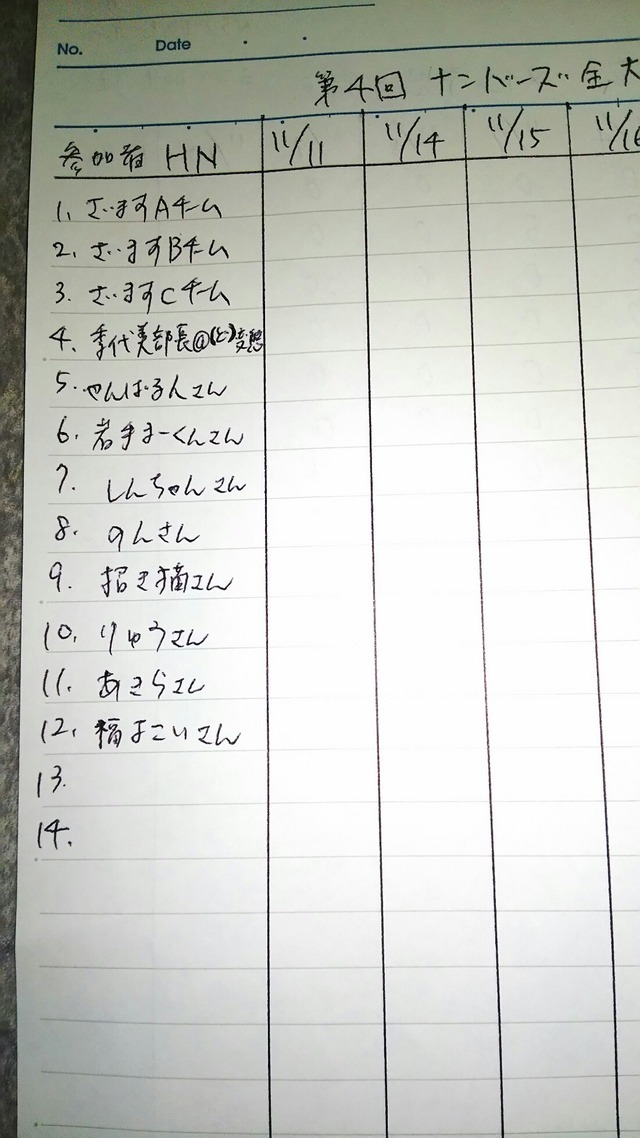 No. Date
第4回 ナンバーズ 全
参加者 HN 11/11 11/14 11/15 11/16
1. ざいますAチーム
2. ざいますBチーム
3. ざいますCチーム
4. 季代美部長@(ど)変態
5. やんばるんさん
6. 若手まーくんさん
7. しんちゃんさん
8. のんさん
9. 招き猫さん
10. りゅうさん
11. あきらさん
12. 福よこいさん
13.
14.